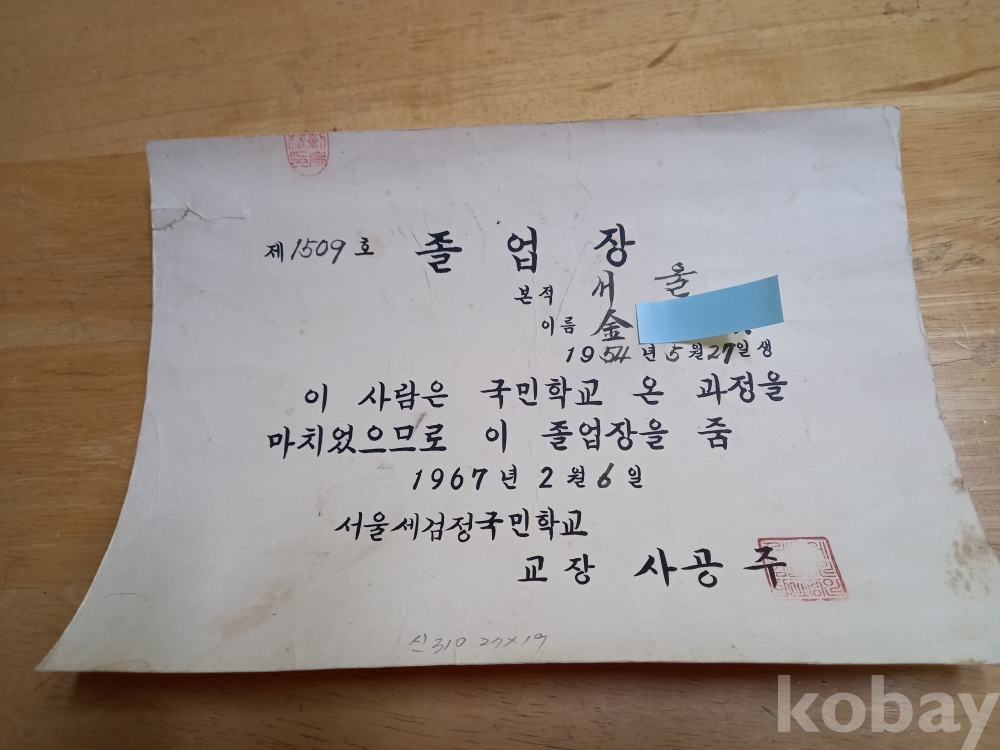 제 1509 호 졸업장
본적 서울
이름 金
1954년 5월 27일생
이 사람은 국민학교 온 과정을
마치었으므로 이 졸업장을 줌
1967년 2월 6일
서울세검정국민학교
교장 사공 주
신310 27×19
kobay